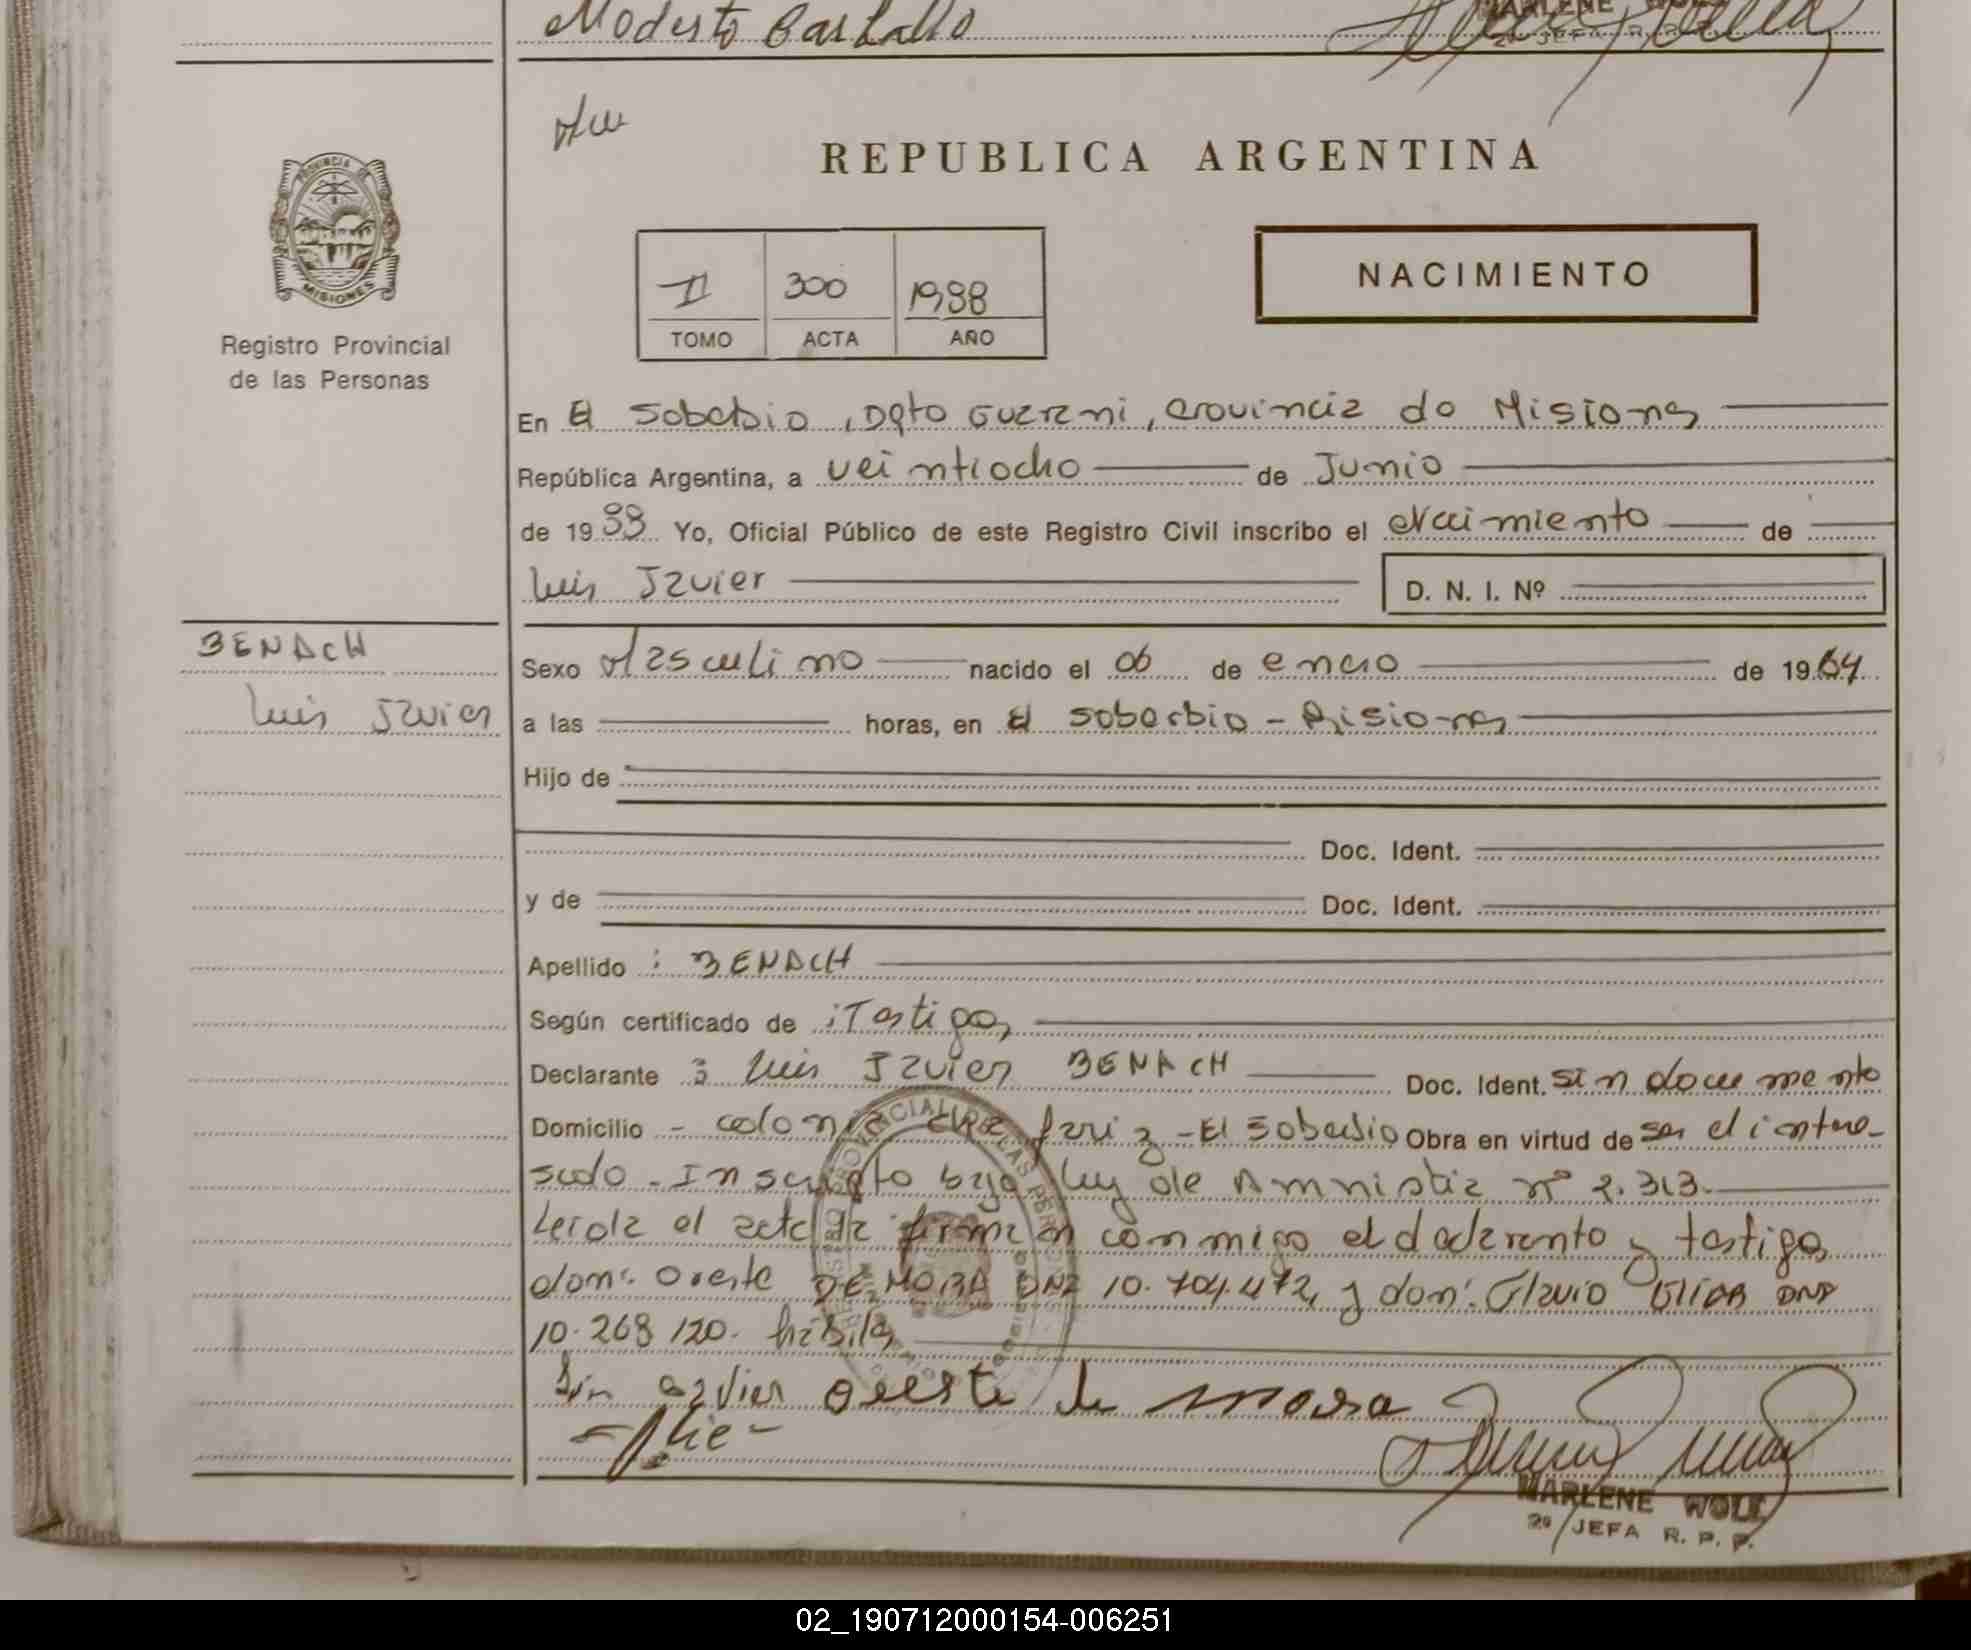 Modesto
MARLENE WOLL
2º JEFA R.
REPUBLICA ARGENTINA
PROVINCIA DE
MISIONES
Registro Provincial
de las Personas
II 300 1988
TOMO ACTA AÑO
NACIMIENTO
En El Soberbio, Dpto Guarani, Provincia de Misiones
República Argentina, a veintiocho de Junio
de 1988 Yo, Oficial Público de este Registro Civil inscribo el Nacimiento de
Luis Javier D. N. I. Nº
BENACH
Luis Javier
Sexo Masculino nacido el 06 de enero de 1964
a las horas, en El Soberbio - Misiones
Hijo de
Doc. Ident.
y de Doc. Ident.
Apellido : BENACH
Según certificado de : Testigos
Declarante : Luis Javier BENACH Doc. Ident. sin documento
Domicilio - colonia - El Soberbio Obra en virtud de ser el intere-
sado - Inscripto bajo ley de Amnistia nº 2.313.
Leida el acta la firman conmigo el declarante y testigos
don: Oreste DE MORA DNI 10.704.472, y don: DNI
10.268 120. habiles
Luis Javier Oreste de Mora
MARLENE WOLL
2º JEFA R. P. P.
02_190712000154-006251